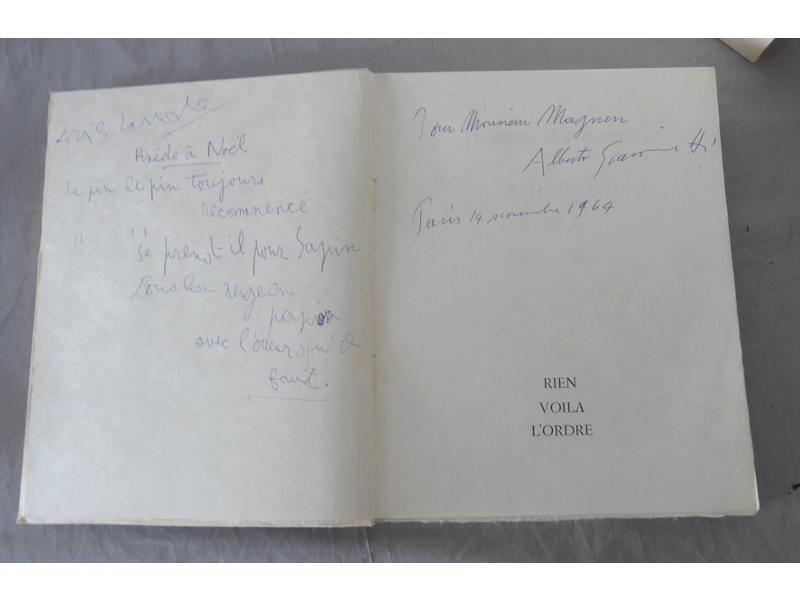 Pinède à Noël
le pin le pin toujours
recommencé
" "se prend-il pour Sapin
sous la neige en
papier
avec l'odeur qu'il
faut.
Pour Monsieur Magnen
Alberto Giacometti
Paris 14 novembre 1964
RIEN
VOILA
L'ORDRE